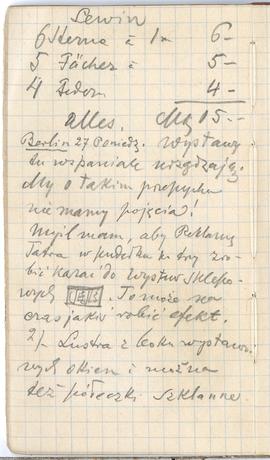 Lewin
6 Sterna à 1M 6-
5 Fächer à 5-
4 Federn 4-
alles. M 15.-
Berlin 27 Poniedz. Wystawy
tu wspaniale urządzają.
My o takim przepychu
nie mamy pojęcia!
Myśl mam, aby Reklamę
Tatra w pudełku try zro-
bić kazać do wystaw sklepo-
wych. To może na
czas jakiś robić efekt.
2/- Lustra z boku wystawo-
wych okien i można
też półeczki szklanne.